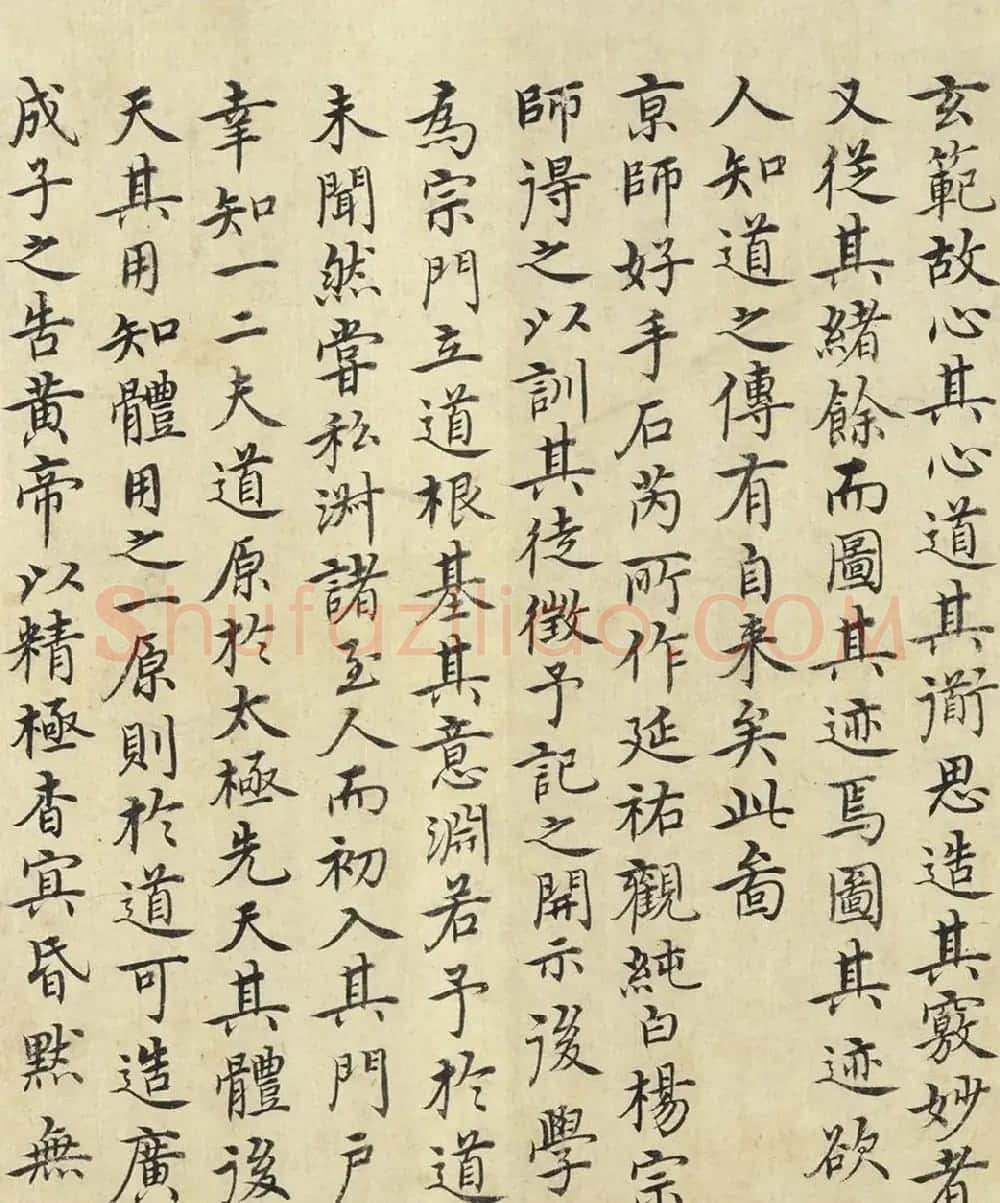 玄範故心其心道其道衍思造其竅妙者
又從其緒餘而圖其迹焉圖其迹欲
人知道之傳有自来矣此啚
京師好手石芮所作延祐觀純白楊宗
師得之以訓其徒徵予記之開示後學
為宗門立道根基其意淵若予於道
未聞然嘗私淑諸至人而初入其門户
幸知一二夫道原於太極先天其體後
天其用知體用之一原則於道可造廣
成子之告黄帝以精極杳冥昏默無
Shufaziliao.COM